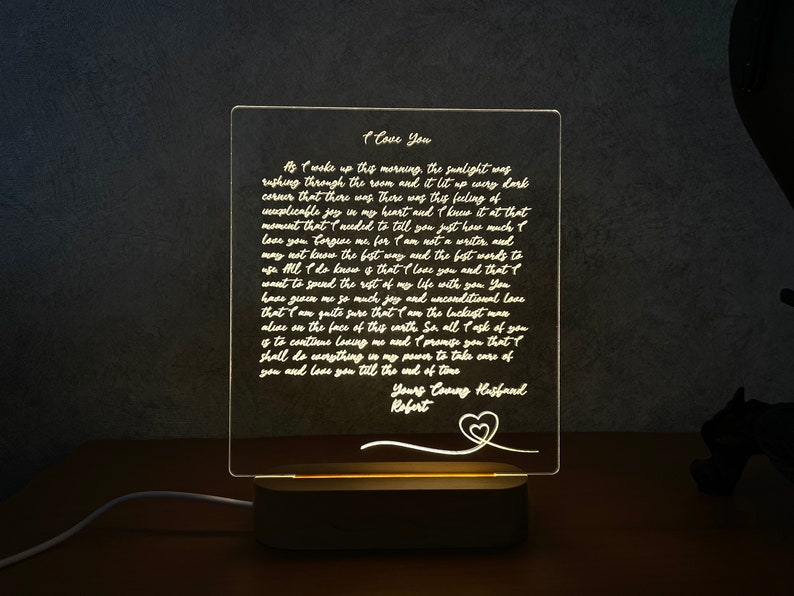 I Love You
As I woke up this morning, the sunlight was
rushing through the room and it lit up every dark
corner that there was. There was this feeling of
inexplicable joy in my heart and I knew it at that
moment that I needed to tell you just how much I
love you. Forgive me, for I am not a writer, and
may not know the best way and the best words to
use. All I do know is that I love you and that I
want to spend the rest of my life with you. You
have given me so much joy and unconditional love
that I am quite sure that I am the luckiest man
alive on the face of this earth. So, all I ask of you
is to continue loving me and I promise you that I
shall do everything in my power to take care of
you and love you till the end of time.
Yours Loving Husband
Robert